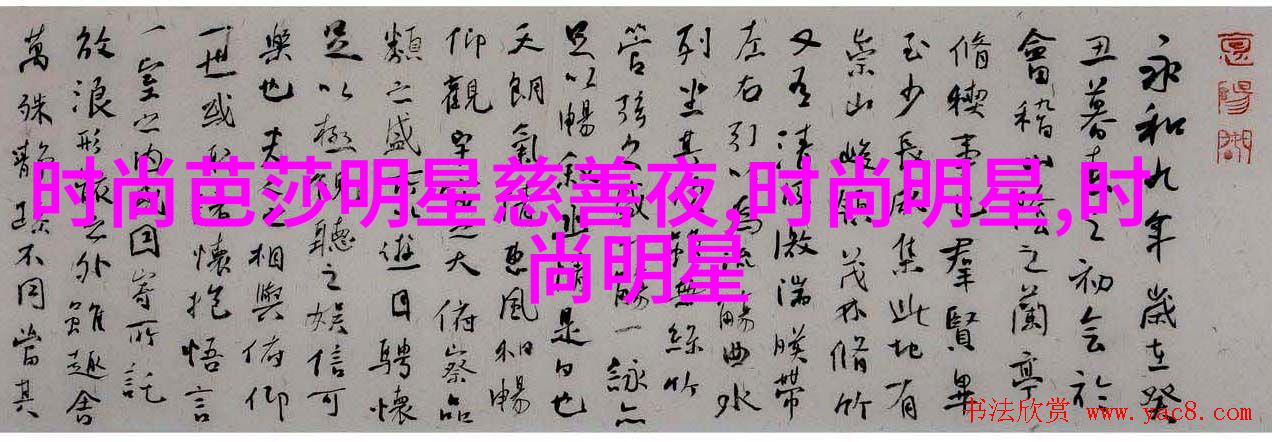 永和九年歲在癸
丑暮春之初會於
會稽山陰之蘭亭
脩稧事也羣賢畢
至少長咸集此地有
崇山峻領茂林脩竹
又有清流激湍暎帶
左右引以為流觴曲水
列坐其次雖無絲竹
管弦之盛一觴一詠亦
足以暢敘幽情是日也
天朗氣清惠風和暢
仰觀宇宙之大俯察品
類之盛所以遊目騁懷
足以極視聽之娛信可
樂也夫人之相與俯仰
一世或取諸懷抱悟言
一室之内或因寄所託
放浪形骸之外雖趣舍
萬殊靜躁不同當其
时尚芭莎明星慈善夜,时尚明星,时
尚明星
书法欣赏 www.yac8.com